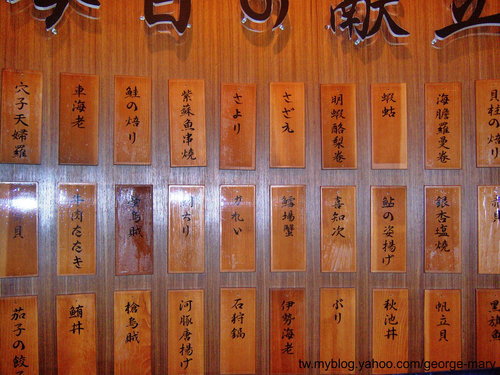 本日の献立
貝柱の焙り
海膽羅曼巻
蝦蛄
明蝦酪梨巻
さざえ
さより
紫蘇魚串焼
鮭の焙り
車海老
穴子天婦羅
銀杏塩焼
鮎の姿揚げ
喜知次
鱈場蟹
かれい
烏賊
牛肉たたき
貝
黒旗魚
帆立貝
秋池丼
ぶり
伊勢海老
石狩鍋
河豚唐揚げ
槍烏賊
鮪丼
茄子の餃
tw.myblog.yahoo.com/george-mary